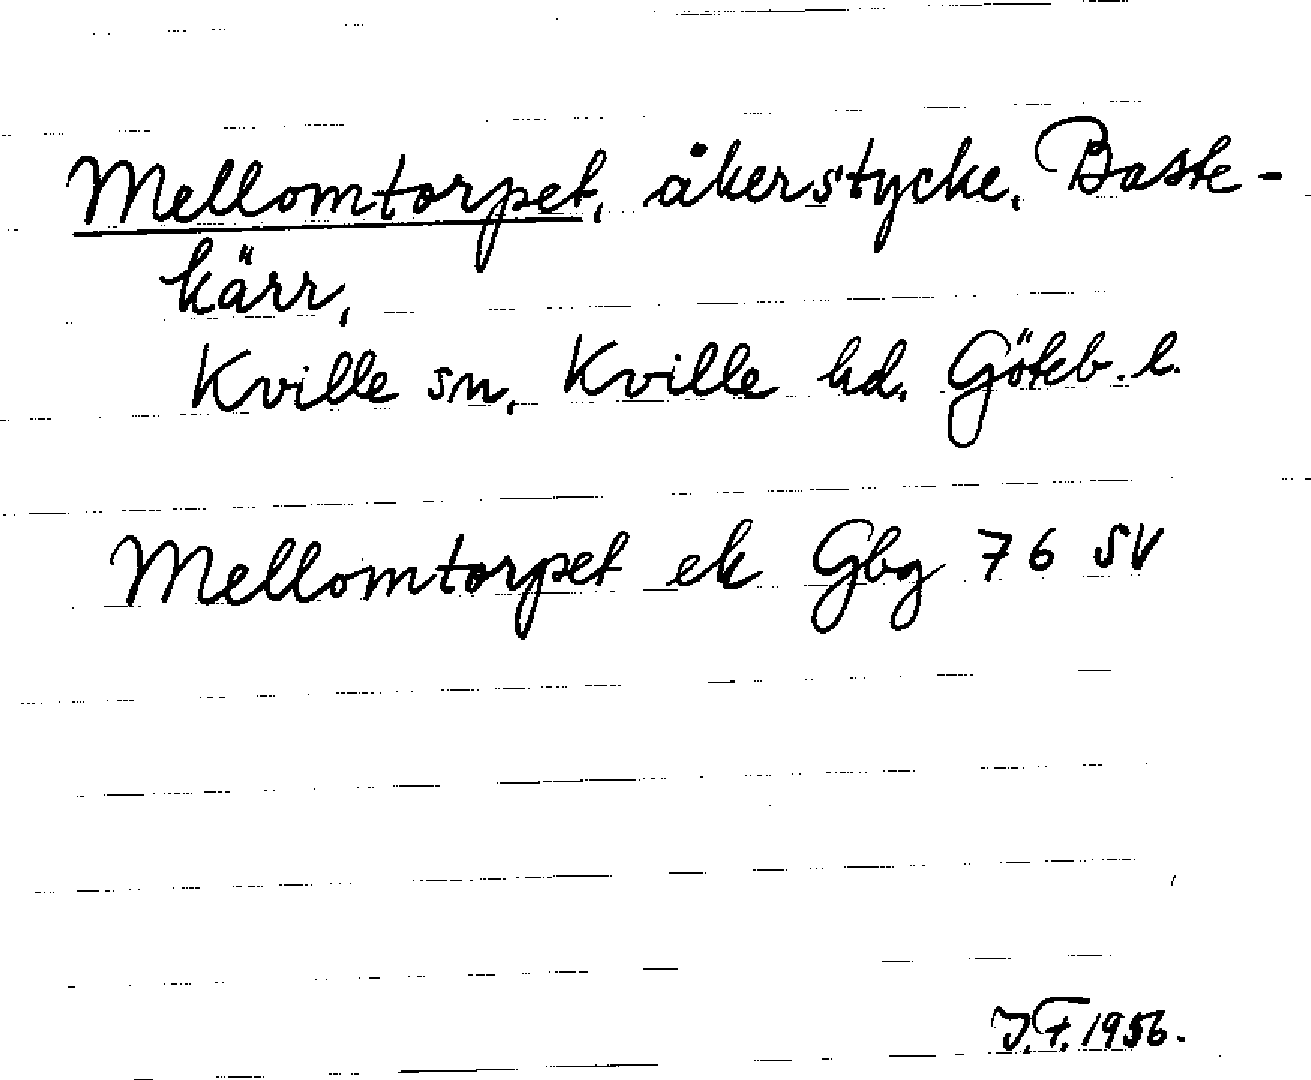 Mellomtorpet, åkerstycke, Baste-
kärr,
Kville sn, Kville hd. Göteb. l.
Mellomtorpet ek Gbg 76 SV
J.F. 1956.